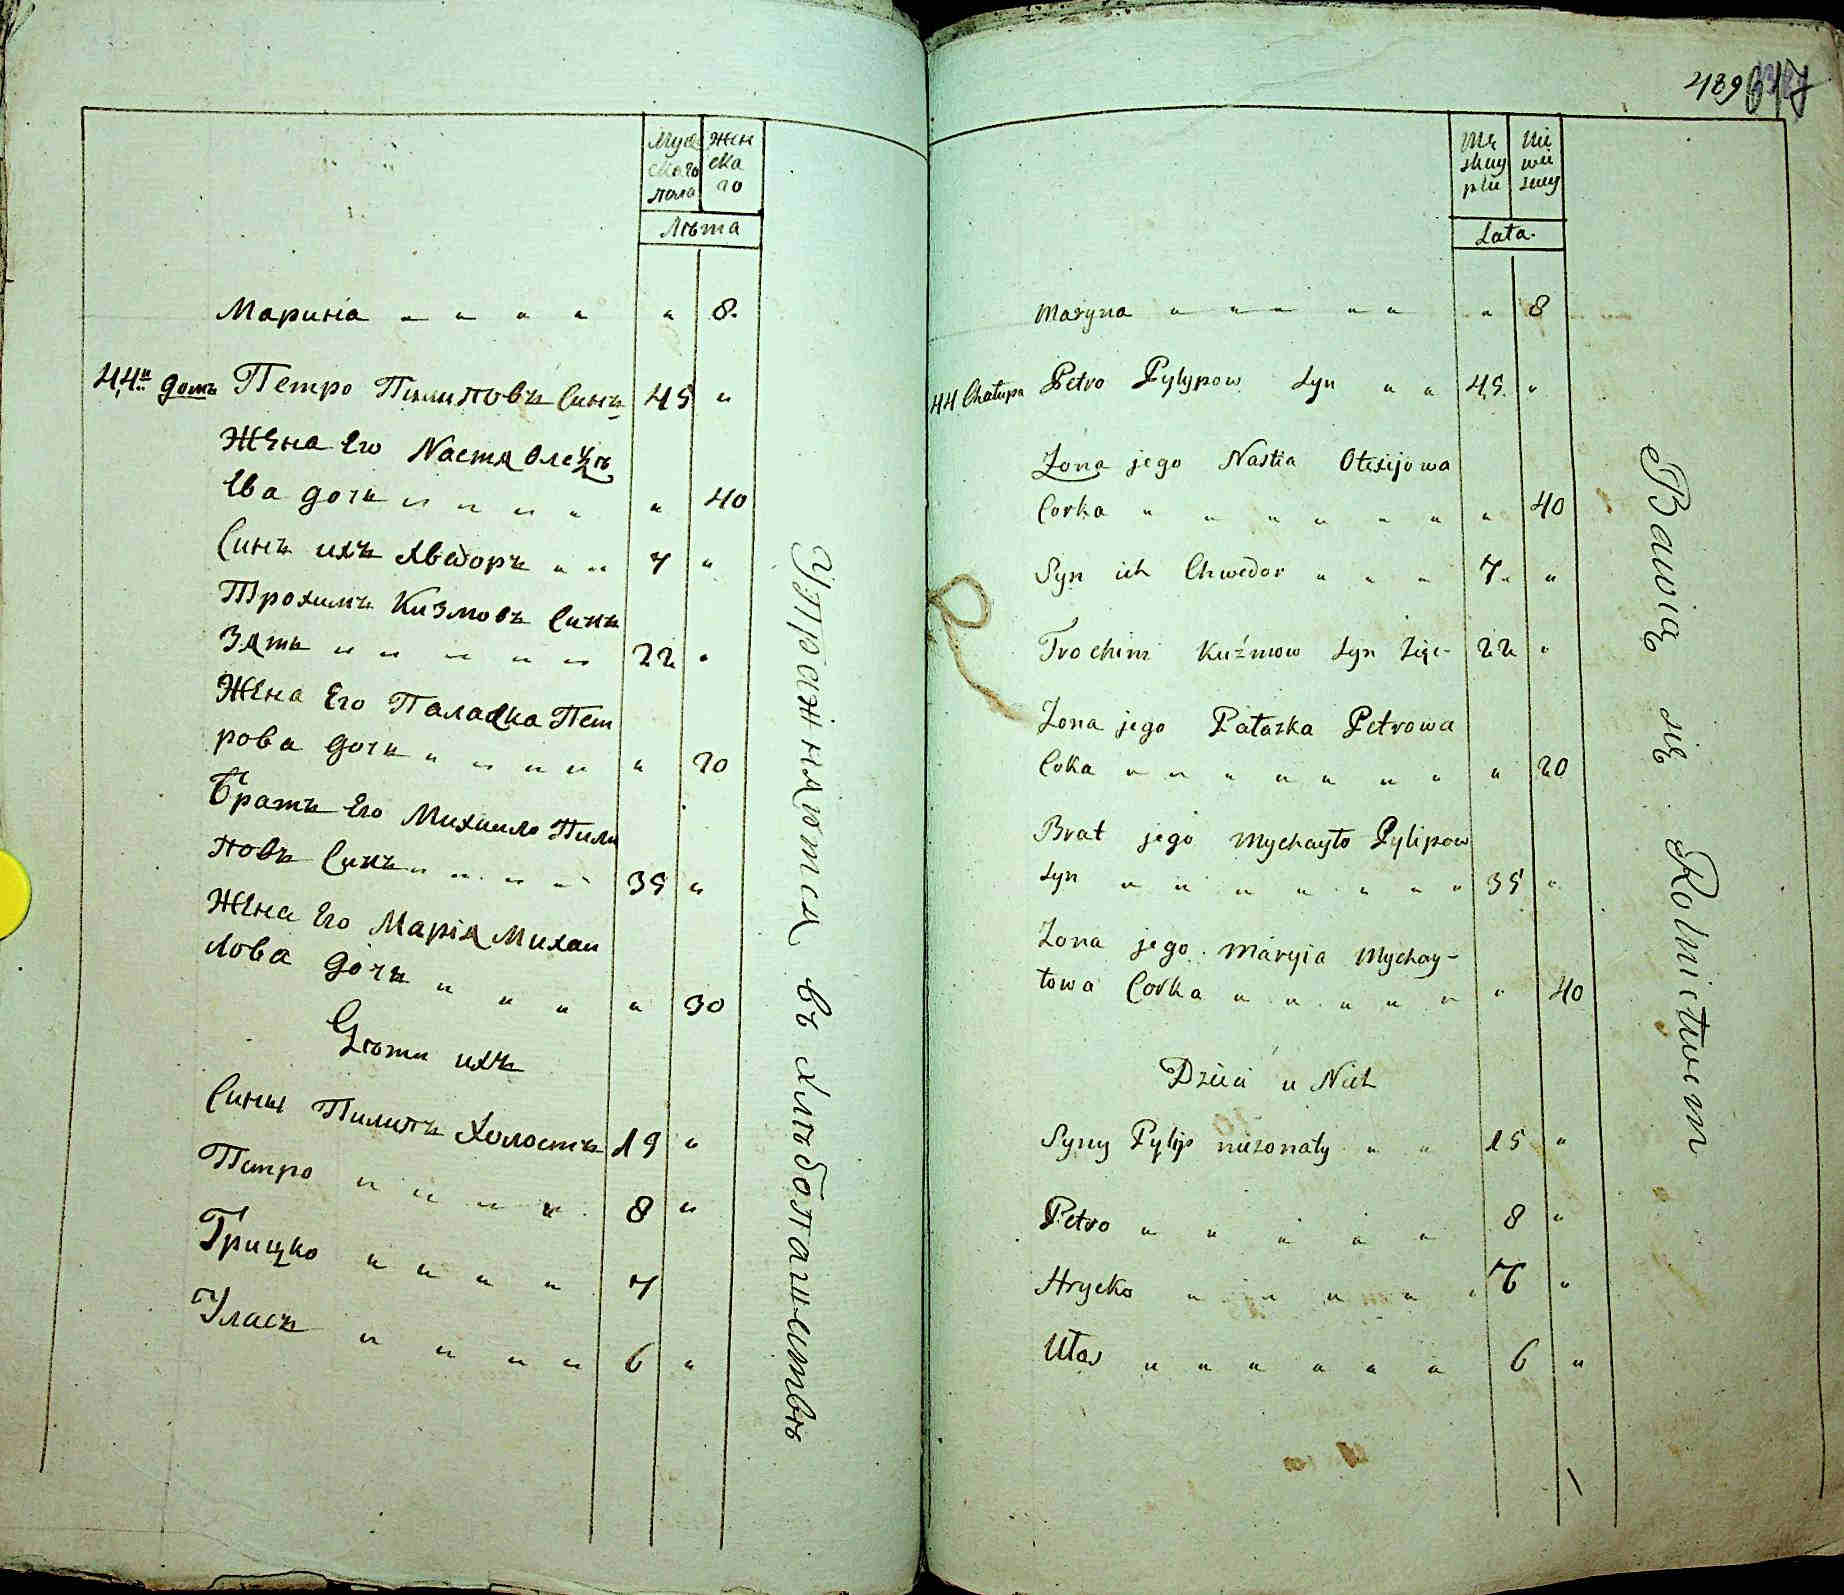 Муж ЖЕН
скаго ска
пола го
Лѣта
Мариніа „ „ „ „ „ 8.
44й домъ Петро Пилиповъ Синъ 45 „
Жена Его Настя Олексѣ
ева дочь „ „ „ „ „ 40
Синъ ихъ Хведоръ „ „ 7 „
Трохимъ Кизмовъ Синъ
Зять „ „ „ „ „ 22 „
Жена Его Палажка Пет
рова дочь „ „ „ „ „ 20
Братъ Его Михаило Пили
повъ Синъ „ „ „ „ 35 „
Жена Его Марія Михаи
лова дочь „ „ „ „ 30
Дѣти ихъ
Сины Пилипъ Холостъ 19 „
Петро „ „ „ „ 8 „
Грицко „ „ „ „ 7
Уласъ „ „ „ „ 6 „
Упражняются въ хлѣбопашествѣ
489
Mę Nie
skiey wie
płci sciey
Lata.
Maryna „ „ „ „ „ „ 8
44 Chałupa Petro Pylypow Syn „ „ 45. „
Żona jego Nastia Ołexijowa
Corka „ „ „ „ „ „ „ 40
Syn ich Chwedor „ „ „ 7. „
Trochim Kuźmow Syn Zięc- 22 „
Żona jego Pałaszka Petrowa
Coka „ „ „ „ „ „ „ „ 20
Brat jego Mychayło Pylipow
Syn „ „ „ „ „ „ „ 35 „
Żona jego Maryia Mychay-
łowa Corka „ „ „ „ „ „ 40
Dzieci u Nich
Syny Pylyp nieżonaty „ „ 15 „
Petro „ „ „ „ „ 8 „
Hrycko „ „ „ „ „ 7 „
Ułas „ „ „ „ „ „ 6 „
Bawią się Rolnictwem